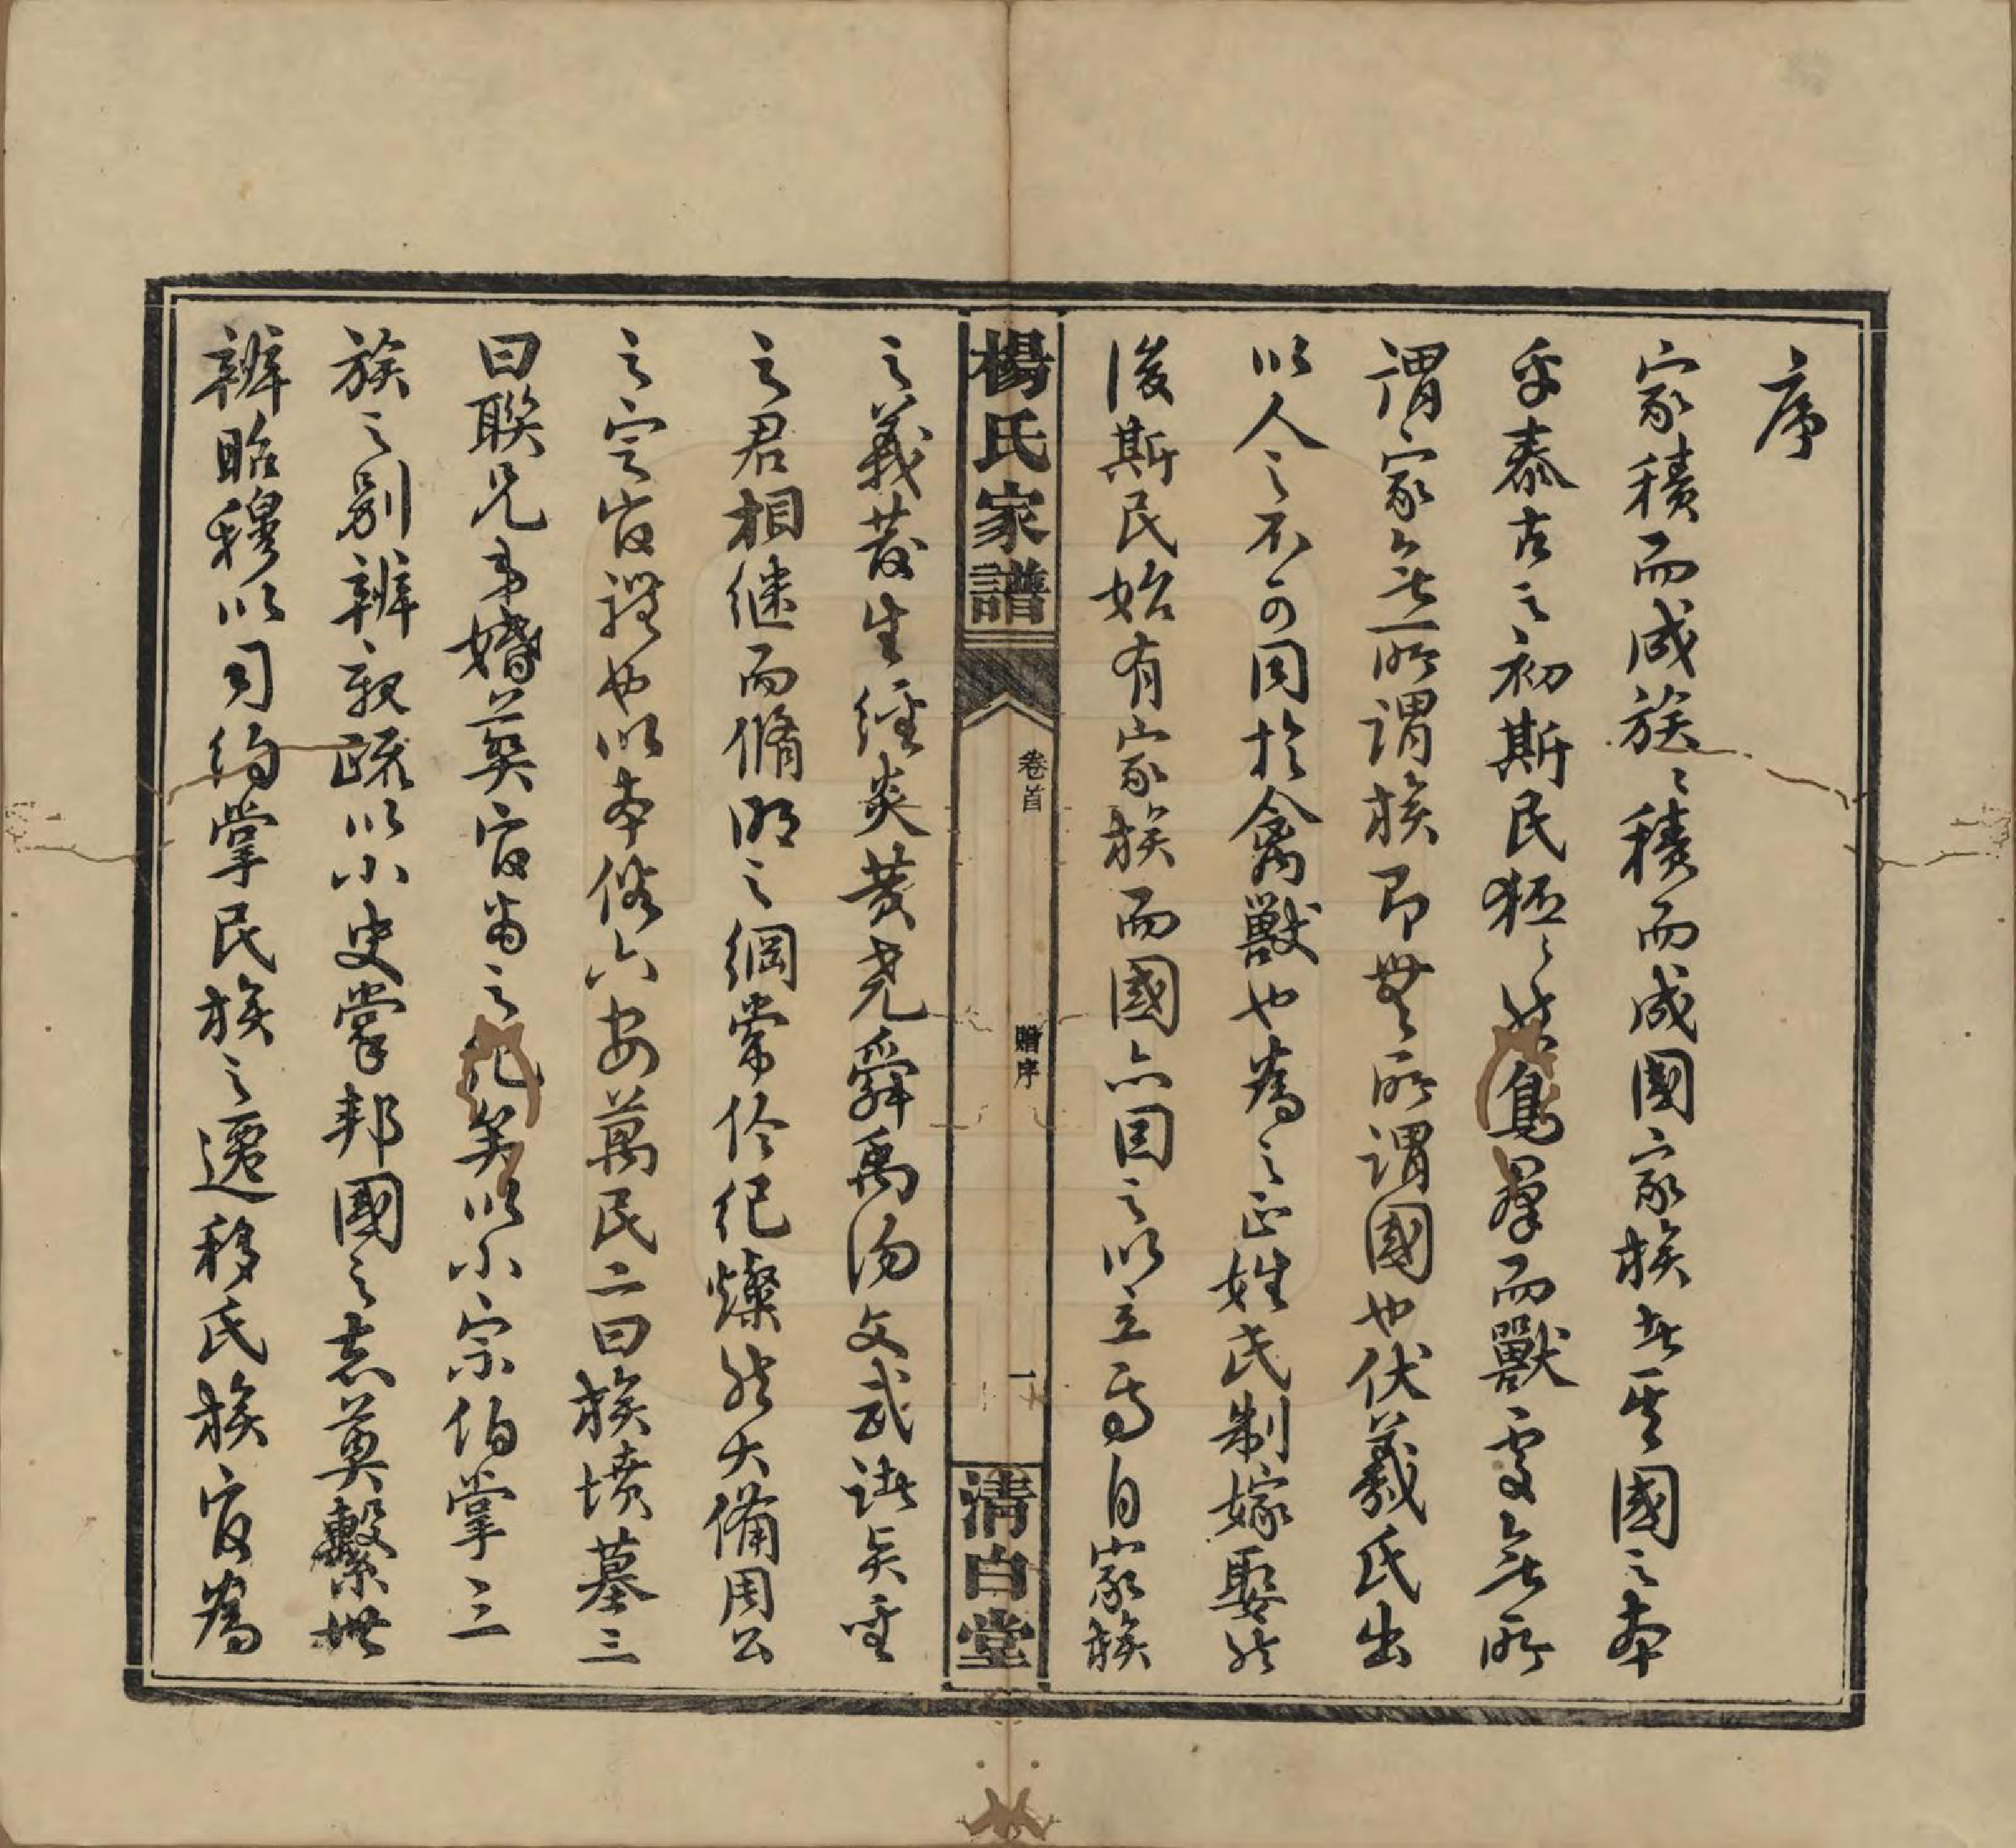 序
家積而成族〻積而成國家族者其國之本
乎泰古之初斯民狉〻然鳥羣而獸處無所
謂家無所謂族即無所謂國也伏羲氏出
以人之不可同於禽獸也為之正姓氏制嫁娶然
後斯民始有家族而國亦因之以立焉自家族
楊氏家譜
卷首
贈序
一
清白堂
之義發生經炎黃堯舜禹湯文武諸矣聖
之君相繼而脩明之綱常倫紀燦然大備周公
之定官禮也以本俗六安萬民二曰族墳墓三
曰聯兄弟婚葬官為之紀矣以小宗伯掌三
族之別辨親疏以小史掌邦國之志奠繫世
辨昭穆以司約掌民族之遷移氏族官為